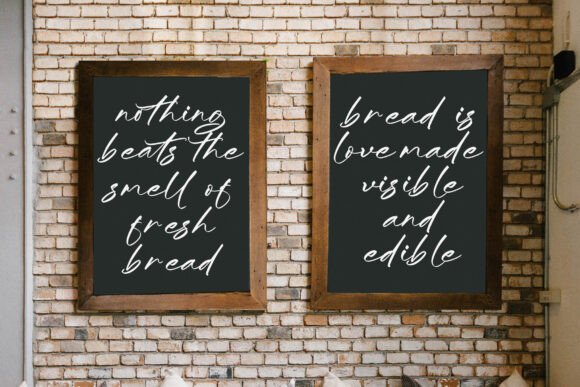 nothing
beats the
smell of
fresh
bread
bread is
love made
visible
and
edible